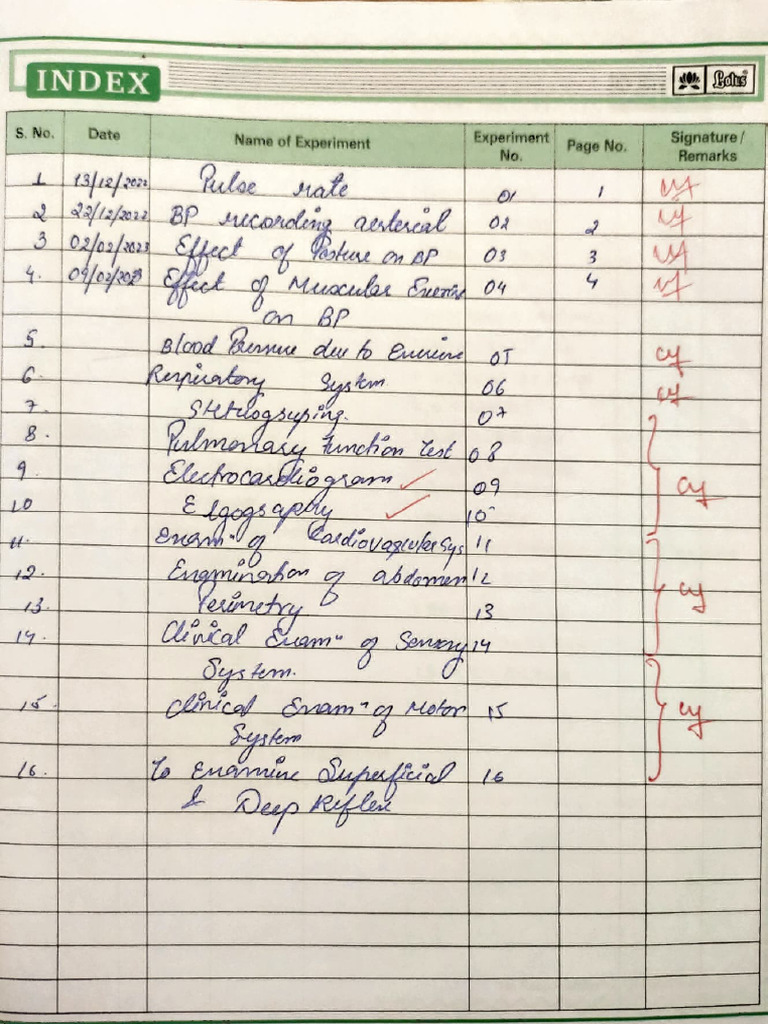 INDEX
Lotus
S. No. Date Name of Experiment Experiment No. Page No. Signature / Remarks
1 13/12/2022 Pulse rate 01 1
2 22/12/2022 BP recording aesterial 02 2
3 02/02/2023 Effect of Posture on BP 03 3
4. 09/02/2023 Effect of Muscular Exercise 04 4
on BP
5. Blood Pressure due to Exercise 05
6. Respiratory System 06
7. 07
8. Pulmonary Function Test 08
9. Electrocardiogram 09
10 Elgography 10
11. Exam" of Cardiovascular Sys 11
12. Examination of abdomen 12
13. Perimetry 13
14. Clinical Exam" of Sensory 14
System.
15. Clinical Exam" of Motor 15
System
16. To Examine Superficial 16
& Deep Reflex